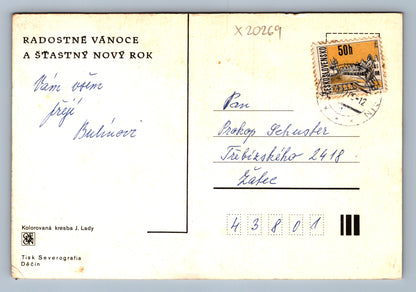 RADOSTNÉ VÁNOCE
A ŠŤASTNÝ NOVÝ ROK
Vám všem
přejí
Bulínovi
X 20269
50h
ČESKOSLOVENSKO
Pan
Prokop Schuster
Třebízského 2418
Žatec
43801
Kolorovaná kresba J. Lady
Tisk Severografia
Děčín